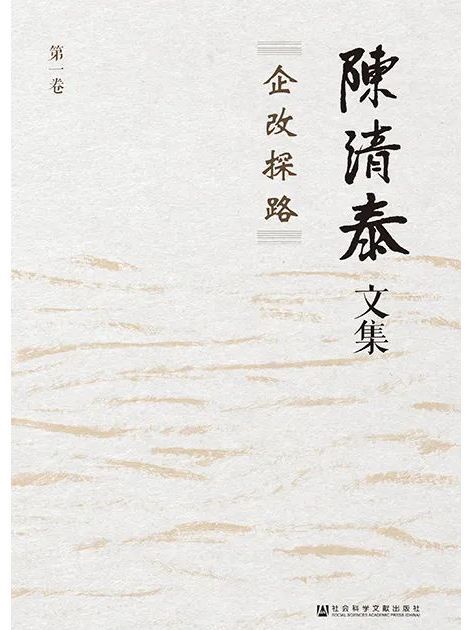 陳清泰
文集
企改探路
第一卷
社会科学文献出版社
SOCIAL SCIENCES ACADEMIC PRESS (CHINA)